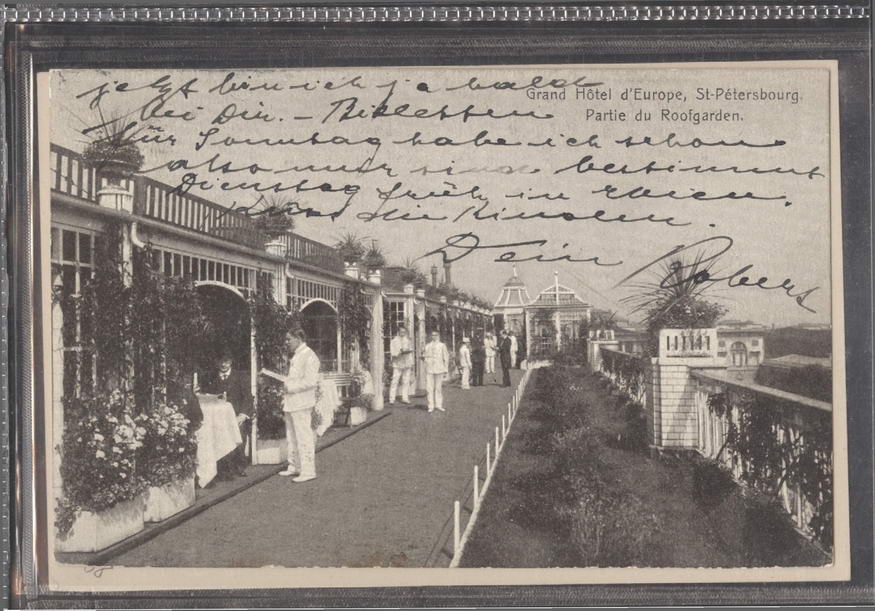 jetzt bin ich ja bald
Grand Hôtel d'Europe, St-Pétersbourg.
bei Dir. –
Partie du Roofgarden.
für Sonntag habe ich schon
also nur sind bestimmt
Dienstag früh in Wien.
Kuss Kindern.
Dein Robert